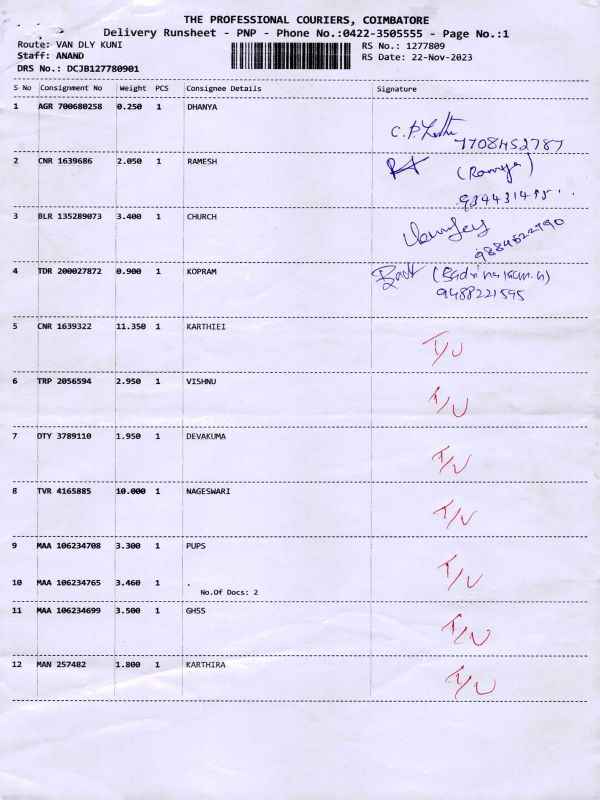 THE PROFESSIONAL COURIERS, COIMBATORE
Delivery Runsheet - PNP - Phone No.:0422-3505555 - Page No.:1
Route: VAN DLY KUNI RS No.: 1277809
Staff: ANAND RS Date: 22-Nov-2023
DRS No.: DCJB127780901
S No Consignment No Weight PCS Consignee Details Signature
1 AGR 700680258 0.250 1 DHANYA
7708452787
2 CNR 1639686 2.050 1 RAMESH
(Ramya)
3 BLR 135289073 3.400 1 CHURCH
9884522790
4 TDR 200027872 0.900 1 KOPRAM
9488221595
5 CNR 1639322 11.350 1 KARTHIEI
T/U
6 TRP 2056594 2.950 1 VISHNU
T/U
7 OTY 3789110 1.950 1 DEVAKUMA
T/U
8 TVR 4165885 10.000 1 NAGESWARI
T/U
9 MAA 106234708 3.300 1 PUPS
T/U
10 MAA 106234765 3.460 1 .
No.Of Docs: 2
11 MAA 106234699 3.500 1 GHSS
T/U
12 MAN 257482 1.800 1 KARTHIRA
T/U